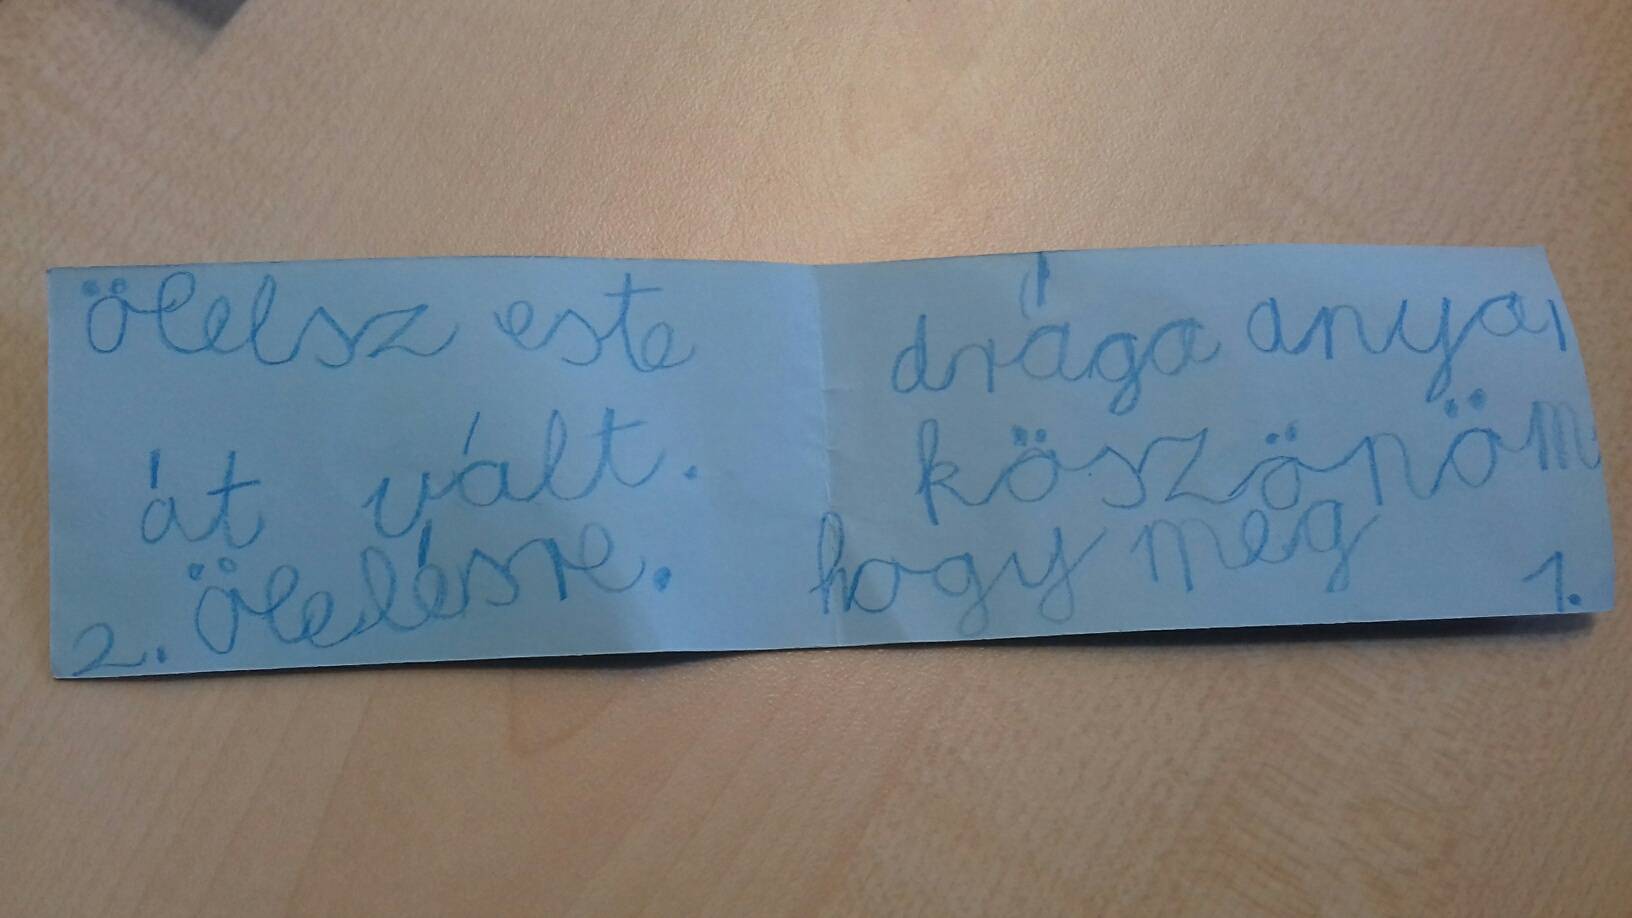 drága anya,
köszönöm
hogy meg
1.
ölelsz este
át vált.
2. Ölelésre.